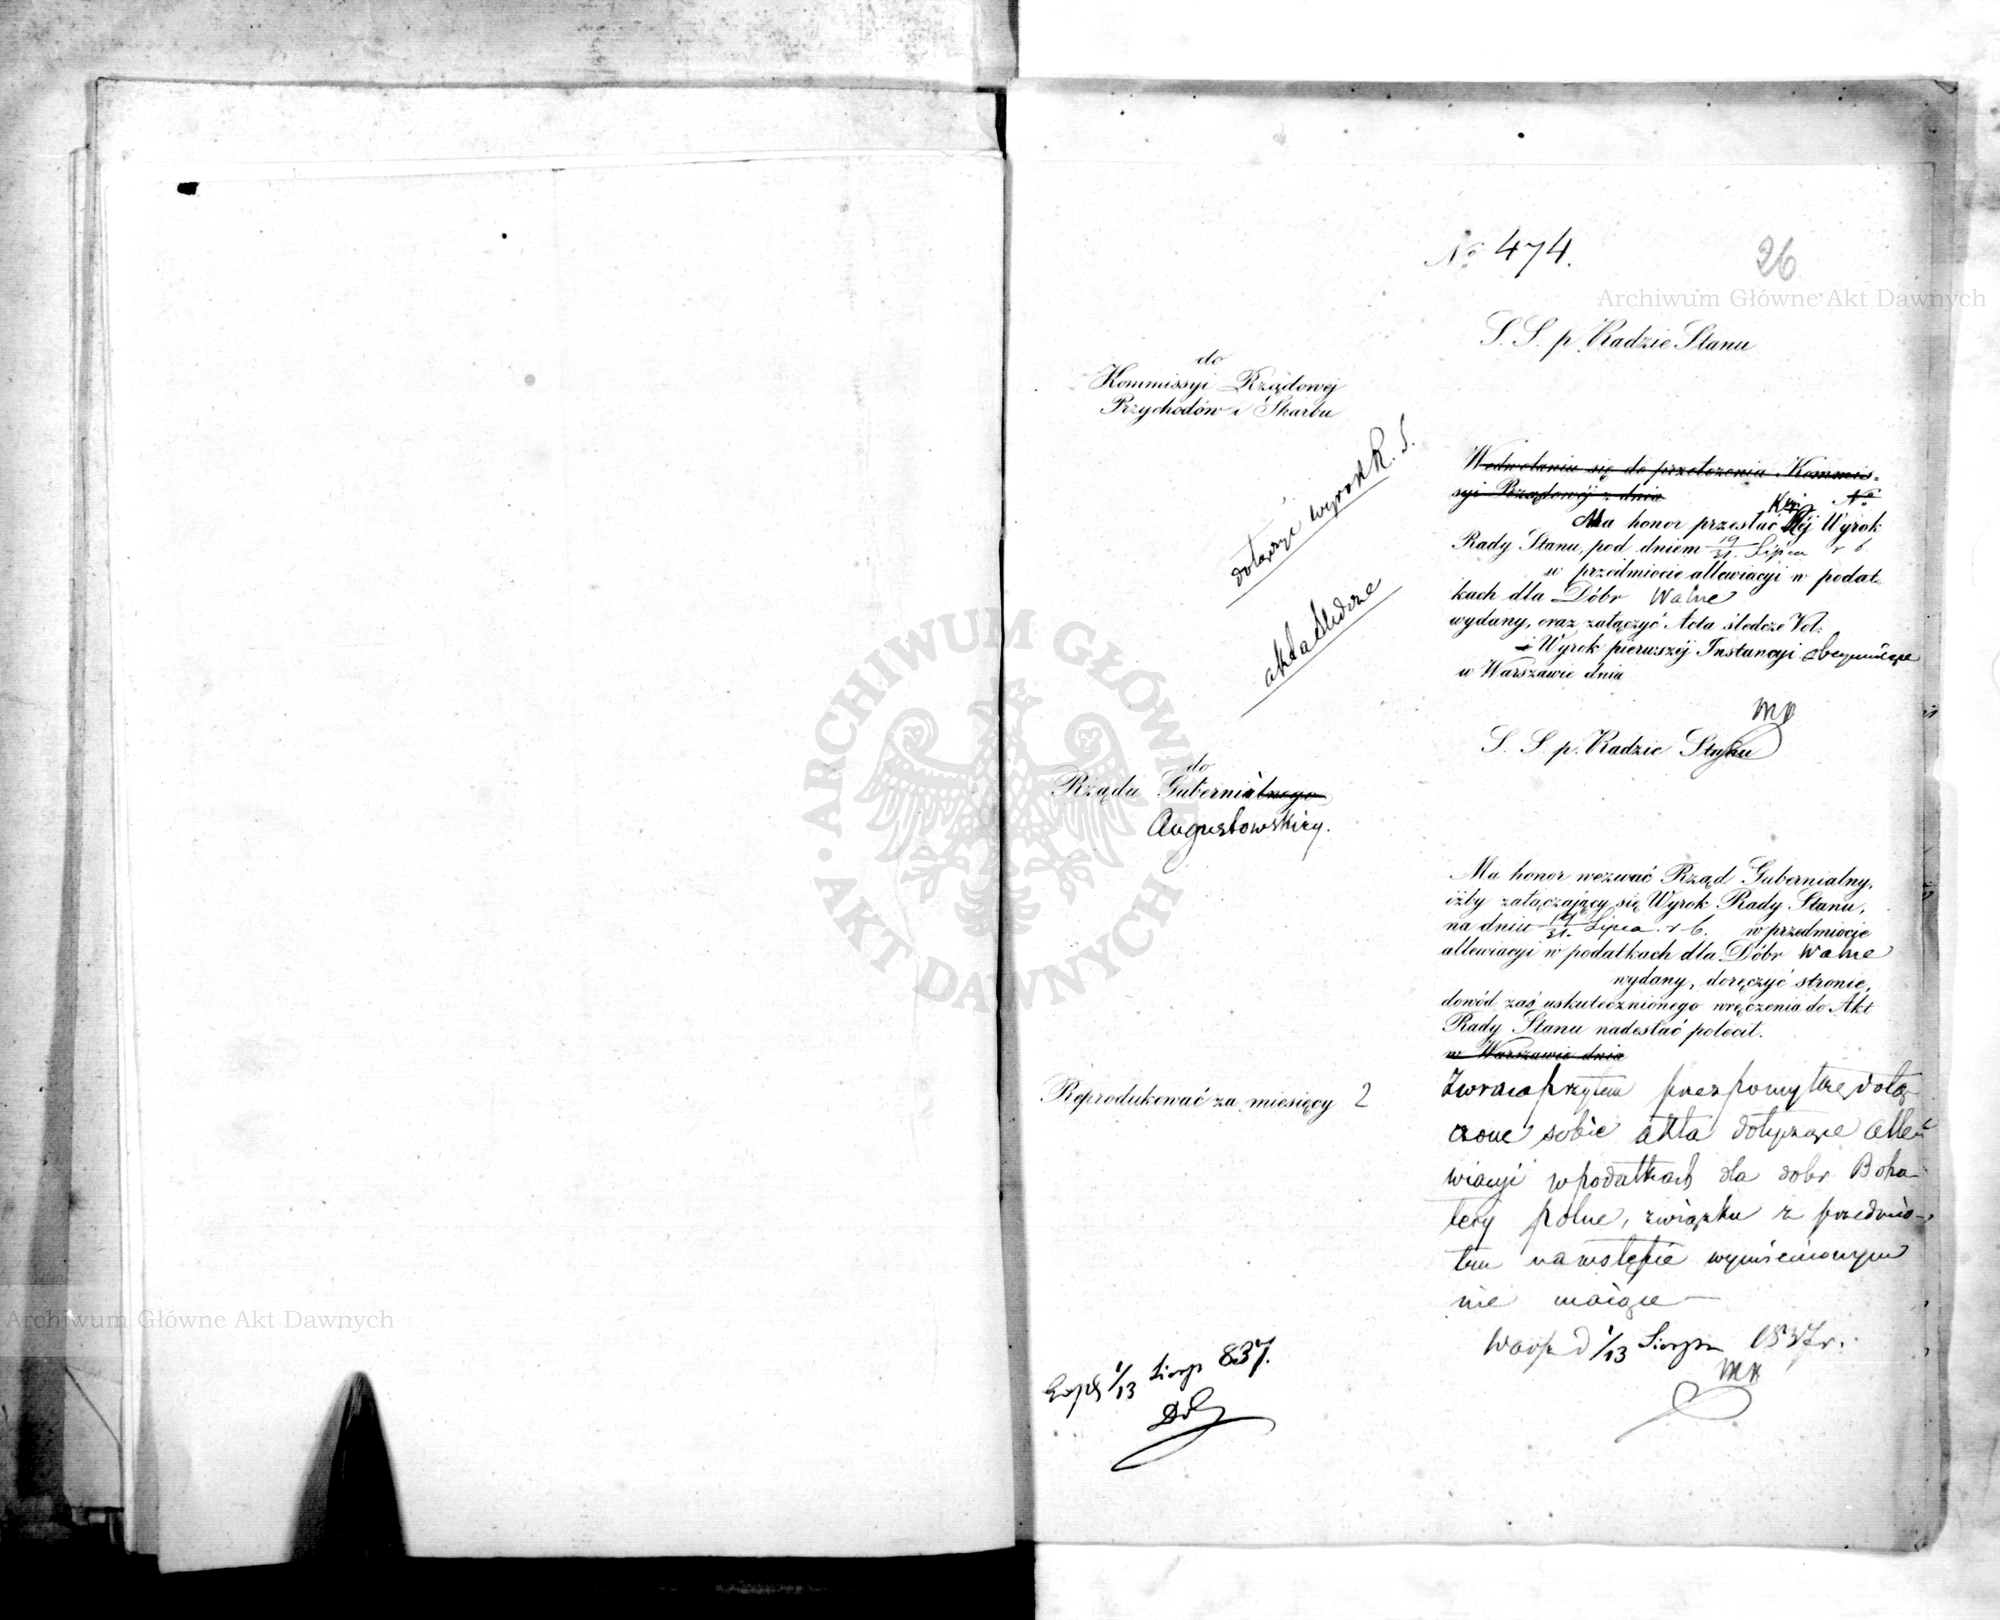 No 474.
26
S. S. p. Radzie Stanu
do
Kommissyi Rządowej
Przychodów i Skarbu
dołączyć wyrok R. S.
akta śledcze
W odwołaniu się do przełożenia Kommis=
syi Rządowéj z dnia No
Ma honor przesłać Jéj Wyrok
Rady Stanu, pod dniem 19/31. Lipca r b.
w przedmiocie allewiacyi w podat=
kach dla Dóbr Walne
wydany, oraz załączyć Acta śledcze Vol:
i Wyrok pierwszéj Instancyi obeymuiące
w Warszawie dnia
S. S. p. Radzie Stanu
do
Rządu Gubernialnego
Augustowskiey.
Ma honor wezwać Rząd Gubernialny,
iżby załączający się Wyrok Rady Stanu,
na dniu 19/31. Lipca r b. w przedmiocie
allewiacyi w podatkach dla Dóbr Walne
wydany, doręczyć stronie,
dowód zaś uskutecznionego wręczenia do Akt
Rady Stanu nadesłać polecił.
w Warszawie dnia
Reprodukować za miesięcy 2
Zwraca przytem przez pomyłkę dołą
czone sobie akta dotyczące alle
wiacyi w podatkach dla dobr Boha
tery polne, związku z przedmio
tem na wstępie wymienionym
nie maiące
Warsz. d 1/13 Sierpn 1837 r.
1/13 Sierp 837.
Archiwum Główne Akt Dawnych
Archiwum Główne Akt Dawnych
ARCHIWUM GŁÓWNE · AKT DAWNYCH ·